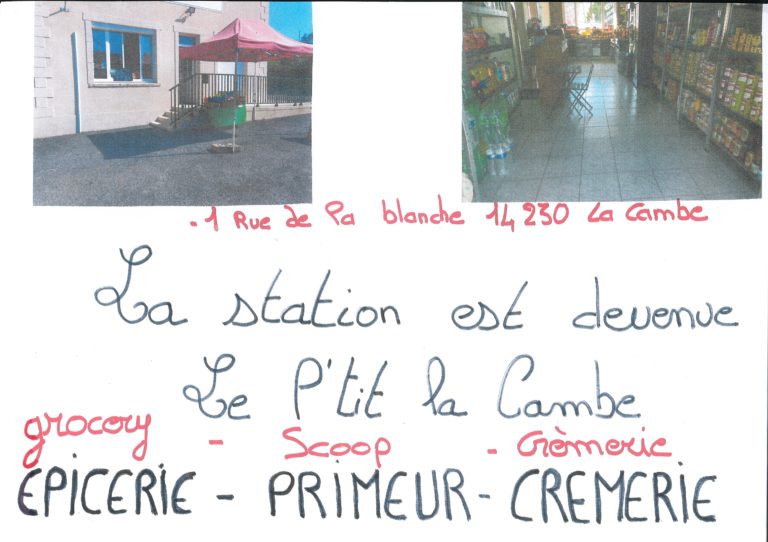 - 1 Rue de la blanche 14 230 La Cambe
La station est devenue
Le P'tit la Cambe
grocory - Scoop - Crèmerie
EPICERIE - PRIMEUR - CREMERIE